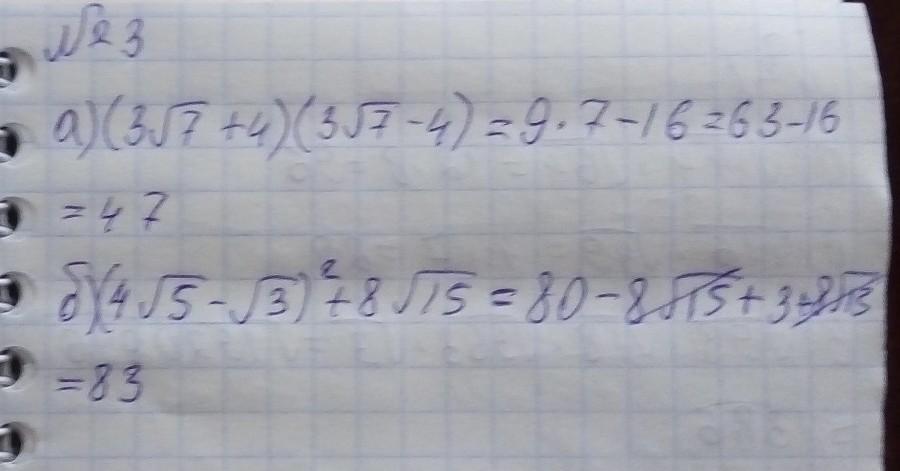 №23
а) (3√7 + 4)(3√7 - 4) = 9 · 7 - 16 = 63 - 16
= 47
б) (4√5 - √3)² + 8√15 = 80 - 8√15 + 3 + 8√15
= 83